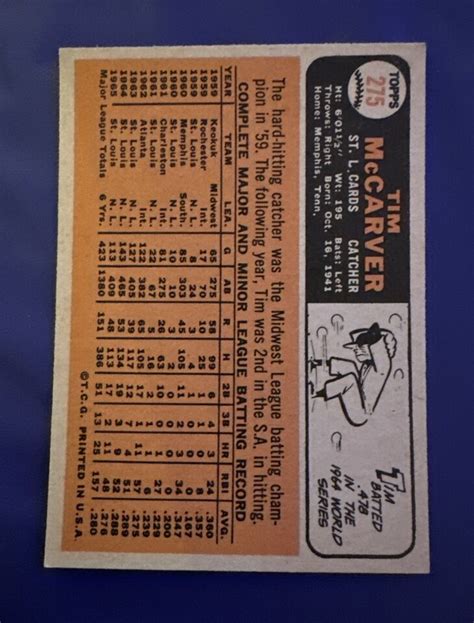 TOPPS
275
TIM
McCARVER
ST. L. CARDS CATCHER
Ht: 6'01½" Wt: 195 Bats: Left
Throws: Right Born: Oct. 16, 1941
Home: Memphis, Tenn.
TIM
BATTED
.478
IN THE
1964 WORLD
SERIES
The hard-hitting catcher was the Midwest League batting cham-
pion in '59. The following year, Tim was 2nd in the S.A. in hitting.
COMPLETE MAJOR AND MINOR LEAGUE BATTING RECORD
YEAR TEAM LEA G AB R H 2B 3B HR RBI AVG.
1959 Keokuk Midwest 65 275 58 99 .360
1959 Rochester Int. 17 70 10 25 .357
1959 St. Louis N. L. 8 24 3 4 .167
1960 Memphis South. .347
1960 St. Louis N. L.
1961 Charleston Int. 61
1961 St. Louis N. L. 22 67 5 16 .239
1962 Atlanta Int. .275
1963 St. Louis N. L. 127 405 39 117 12 7 4 51 .289
1964 St. Louis N. L. 143 465 53 134 19 3 9 52 .288
1965 St. Louis N. L. 113 409 48 113 17 2 11 48 .276
Major League Totals 6 Yrs. 423 1380 151 386 51 157 .280
©T.C.G. PRINTED IN U.S.A.